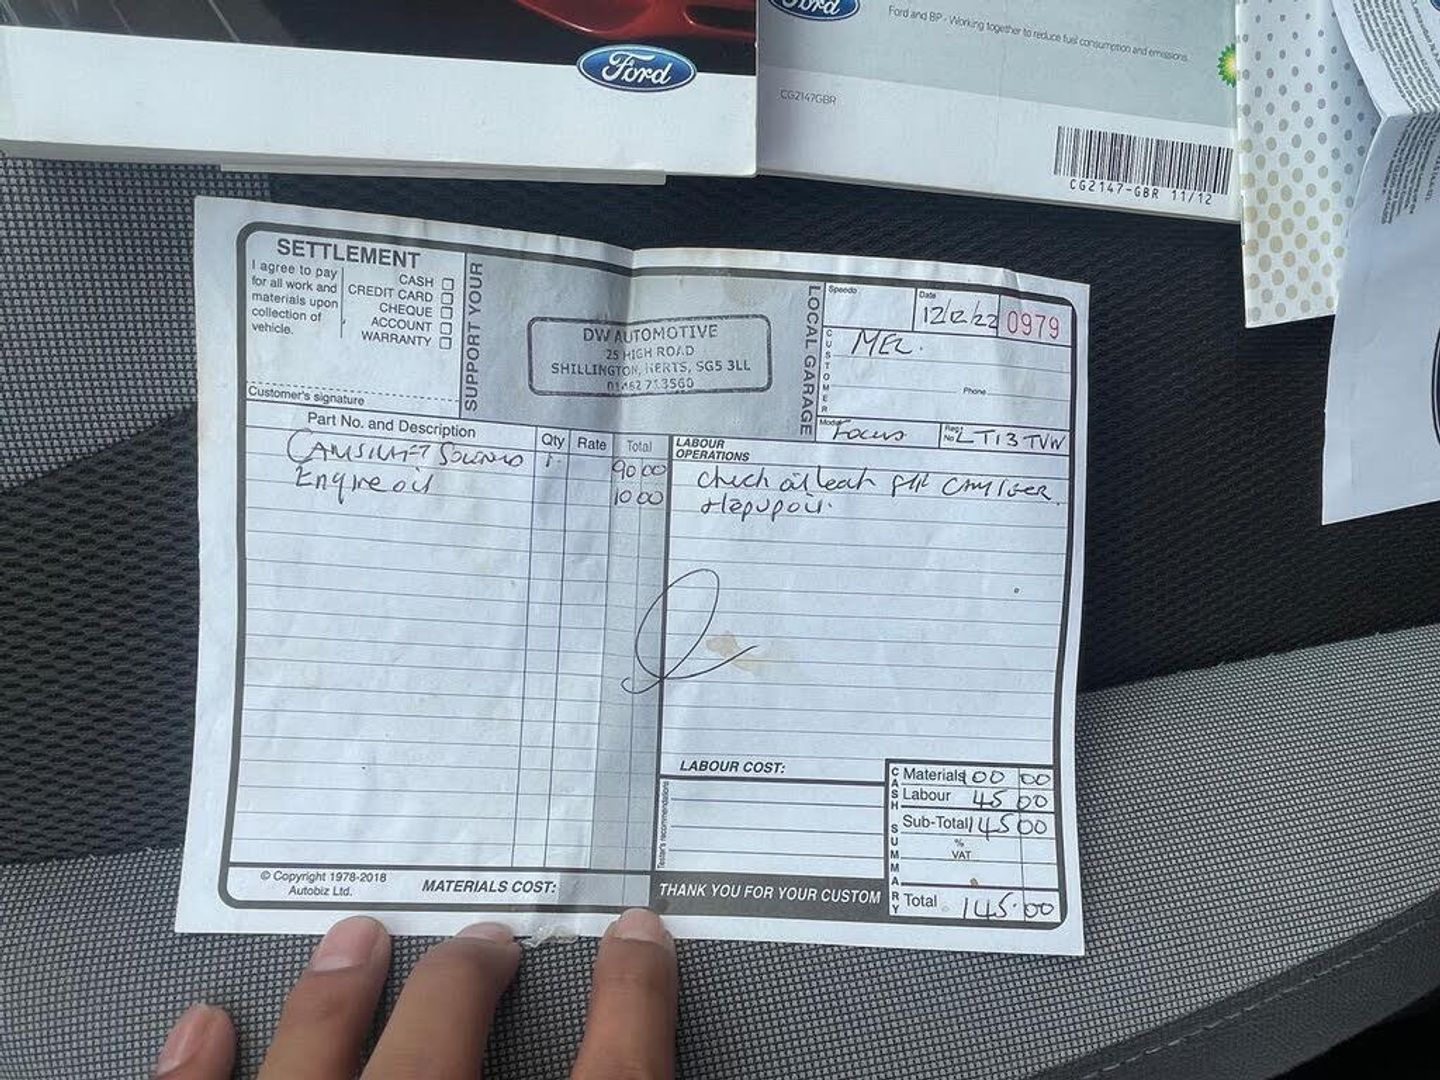 Ford
Ford
Ford and BP - Working together to reduce fuel consumption and emissions.
CG2147GBR
CG2147-GBR 11/12
SETTLEMENT
I agree to pay
for all work and
materials upon
collection of
vehicle.
CASH
CREDIT CARD
CHEQUE
ACCOUNT
WARRANTY
Customer's signature
SUPPORT YOUR
DW AUTOMOTIVE
25 HIGH ROAD
SHILLINGTON, HERTS, SG5 3LL
01462 713560
LOCAL GARAGE
Speedo
Date
12/12/22
0979
CUSTOMER
MEL.
Phone
Model
Focus
Reg. No
LT13TVW
Part No. and Description
Qty
Rate
Total
CAMSHAFT 1. 90 00
Engine oil 10 00
LABOUR
OPERATIONS
Check oil leak
+ top up oil.
LABOUR COST:
Tester's recommendations
CASH SUMMARY
Materials 100 00
Labour 45 00
Sub-Total 145 00
%
VAT
Total 145.00
© Copyright 1978-2018
Autobiz Ltd.
MATERIALS COST:
THANK YOU FOR YOUR CUSTOM